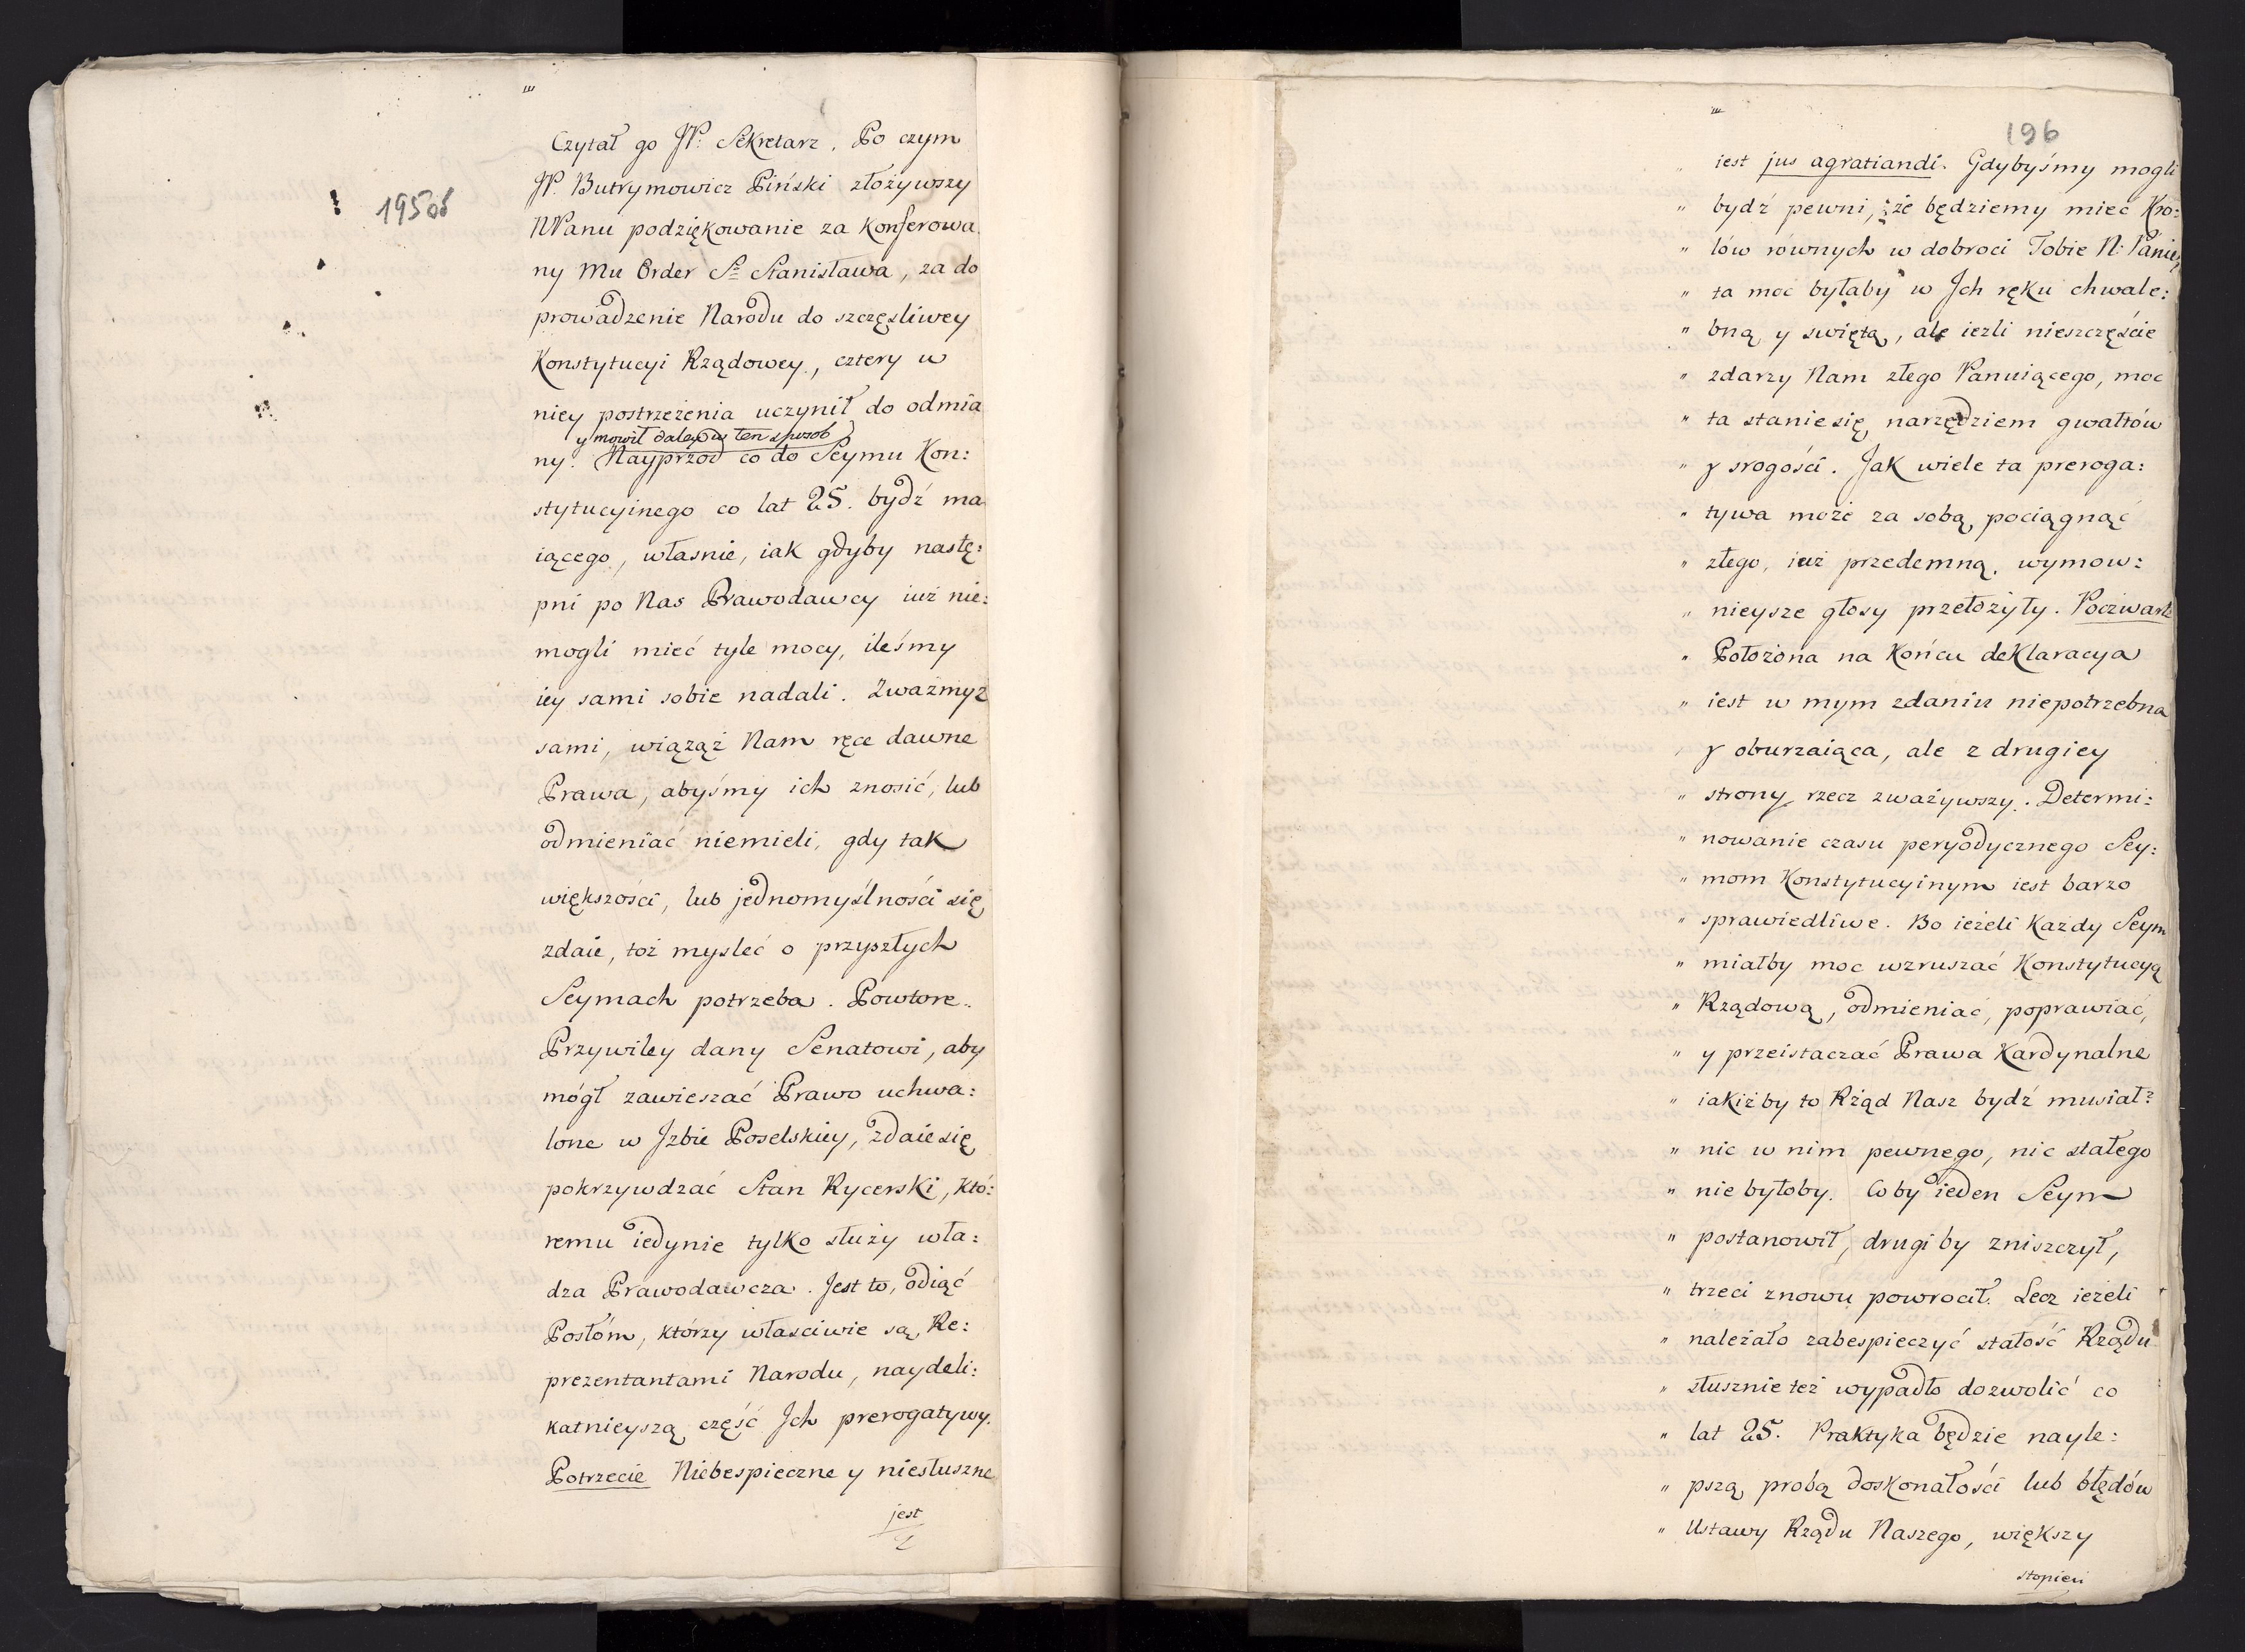 195 od
Czytał go JP: Sekretarz. Po czym
JP. Butrymowicz Piński złożywszy
NPanu podziękowanie za konferowa
ny Mu Order S° Stanisława, za do
prowadzenie Narodu do szczęsliwey
Konstytucyi Rządowey, cztery w
niey postrzeżenia uczynił do odmia
y mowił daley w ten sposob
ny. Nayprzod co do Seymu Kon:
stytucyinego co lat 25. bydź ma
iącego, własnie, iak gdyby nastę:
pni po Nas Prawodawcy iuż nie:
mogli mieć tyle mocy, ileśmy
iey sami sobie nadali. Zważmyż
sami, wiążąż Nam ręce dawne
Prawa, abyśmy ich znosić, lub
odmieniać niemieli, gdy tak
większości, lub jednomyślności się
zdaie, toż mysleć o przyszłych
Seymach potrzeba. Powtore..
Przywiley dany Senatowi, aby
mógł zawieszać Prawo uchwa:
lone w Jzbie Poselskiey, zdaie się
pokrzywdzać Stan Rycerski, któ:
remu iedynie tylko służy wła:
dza Prawodawcza. Jest to, odiąć
Posłóm, którzy własciwie są Re:
prezentantami Narodu, naydeli:
katnieyszą część Jch prerogatywy.
Potrzecie Niebespieczne y niesłuszne
jest
196
iest jus agratiandi. Gdybyśmy mogli
" bydź pewni, że będziemy mieć Kró:
" lów równych w dobroci Tobie N: Panie,
" ta moc byłaby w Jch ręku chwale:
" bną y swiętą, ale iezli nieszczęście
" zdarzy Nam złego Panuiącego, moc
" ta stanie się narzędziem gwałtów
" y srogości. Jak wiele ta preroga:
" tywa może za sobą pociągnąć
" złego, iuż przedemną wymow:
" nieysze głosy przełożyły. Poczwarte
" Położona na końcu deklaracya
" iest w mym zdaniu niepotrzebna
" y oburzaiąca, ale z drugiey
" strony rzecz zważywszy. Determi:
" nowanie czasu peryodycznego Sey:
" mom Konstytucyinym iest barzo
" sprawiedliwe. Bo ieżeli każdy Seym
" miałby moc wzruszać Konstytucyą
" Rządową, odmieniać, poprawiać,
" y przeistaczać Prawa Kardynalne
" iakiż by to Rżąd Nasz bydź musiał?
" nic w nim pewnego, nic stałego
" nie byłoby. Coby ieden Seym
" postanowił, drugi by zniszczył,
" trzeci znowu powrocił. Lecz ieżeli
" należało zabespieczyć stałość Rządu
" słusznie też wypadło dozwolić co
" lat 25. Praktyka będzie nayle:
" pszą probą doskonałości lub błędów
" Ustawy Rządu Naszego, większy
stopień